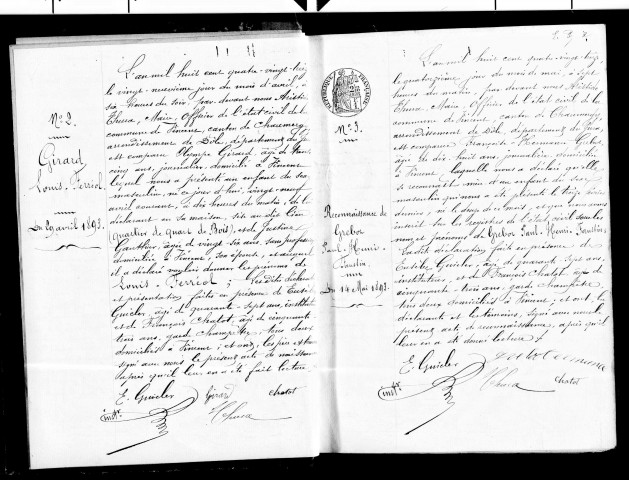 N° 2.
Girard
Louis-Ferréol.
Du 29 avril 1893.
L'an mil huit cent quatre-vingt-treize,
le vingt-neuvième jour du mois d'avril, à
six heures du soir, par devant nous Aristide
Thura, Maire, Officier de l'état civil de la
commune de
canton de
arrondissement de Dôle, département du Jura
est comparu Olympe Girard, âgé de trente
cinq ans, journalier, domicilié à
lequel nous a présenté un enfant du sexe
masculin, né ce jour d'hui, vingt-neuf
avril courant, à dix heures du matin, de lui
déclarant en sa maison, sise au dit lieu
(Quartier de quart de Bois), et de Justine
Gauthier, âgée de vingt six ans, sans profession
domiciliée à son épouse, et auquel
il a déclaré vouloir donner les prénoms de
Louis-Ferréol; les dites déclaration
et présentation faites en présence de
Guicler, âgé de quarante-sept ans, instituteur
et de François Chatot, âgé de cinquante-
trois ans, garde champêtre, tous deux
domiciliés à et ont, les père et témoins
signé avec nous le présent acte de naissance
après qu'il leur en a été fait lecture.
E. Guicler Girard Chatot
instr. Thura
RÉPUBLIQUE FRANÇAISE
N° 3.
Reconnaissance de
Grebot
Paul-Henri-
Faustin
Du 14 Mai 1893.
L'an mil huit cent quatre-vingt-treize,
le quatorzième jour du mois de mai, à sept
heures du matin, par devant nous Aristide
Thura, Maire, Officier de l'état civil de la
commune de canton de
arrondissement de Dôle, département du Jura,
est comparue Françoise-Hermance Grebot
âgée de dix huit ans, journalière, domiciliée
à laquelle nous a déclaré qu'elle
se reconnaît mère d'un enfant du sexe
masculin qui nous a été présenté le treize
dernier, né le deux de ce mois, et que nous avons
inscrit sur les registres de l'état civil sous les
nom et prénoms de Grebot Paul-Henri-Faustin.
La dite déclaration faite en présence de
Guicler, âgé de quarante sept ans
instituteur, et de François Chatot, âgé de
cinquante trois ans, garde champêtre
tous deux domiciliés à et ont, la
déclarante et les témoins, signé avec nous le
présent acte de reconnaissance, après qu'il
leur en a été donné lecture.
E. Guicler
instr. Thura Chatot